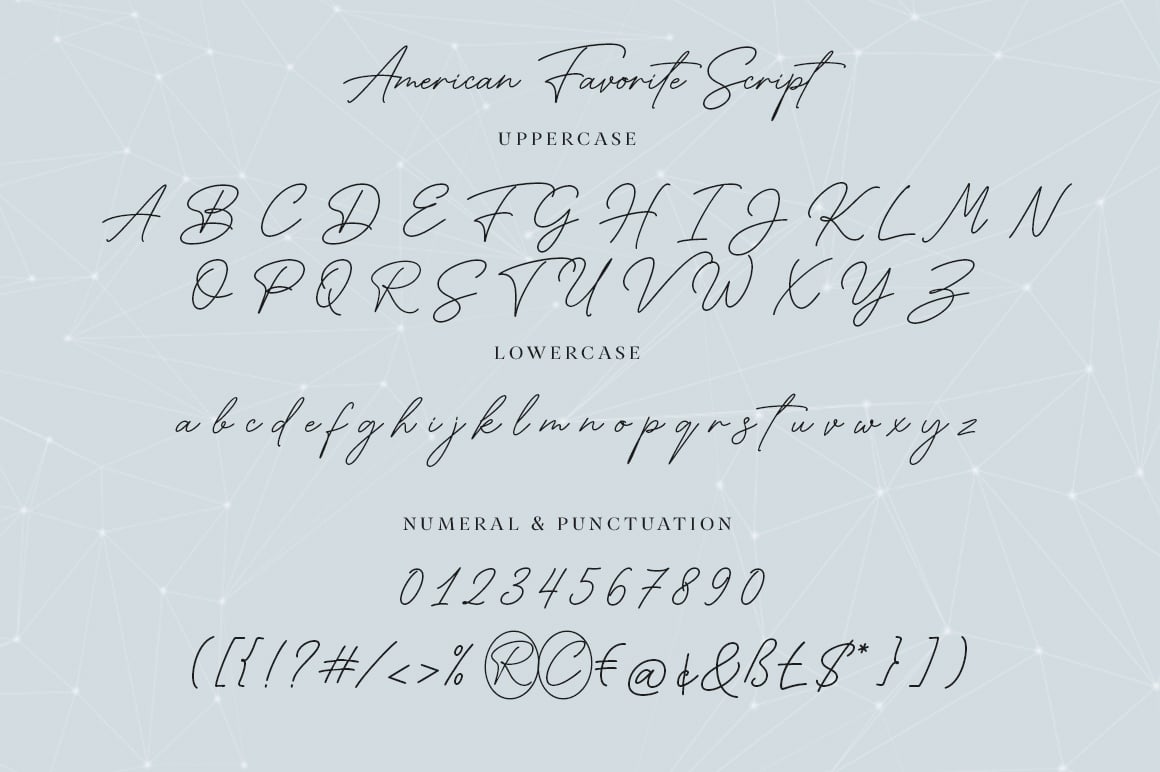 American Favorite Script
UPPERCASE
A B C D E F G H I J K L M N
O P Q R S T U V W X Y Z
LOWERCASE
a b c d e f g h i j k l m n o p q r s t u v w x y z
NUMERAL & PUNCTUATION
0 1 2 3 4 5 6 7 8 9 0
( [ { ! ? # / < > % ® © € @ ¢ & ß £ $ * } ] )